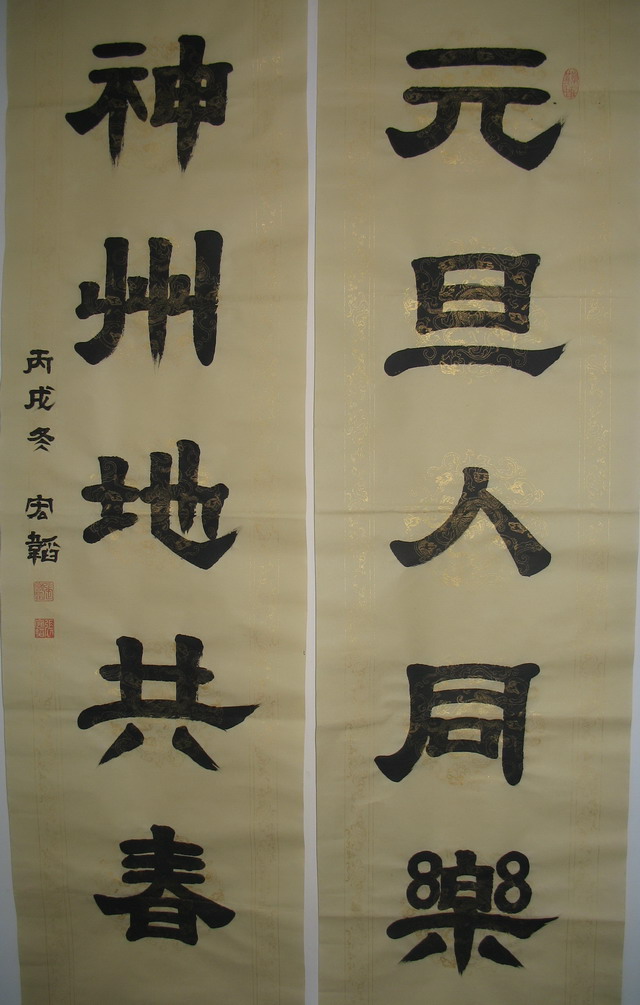 元旦人同樂
神州地共春
丙戌冬 宏韜